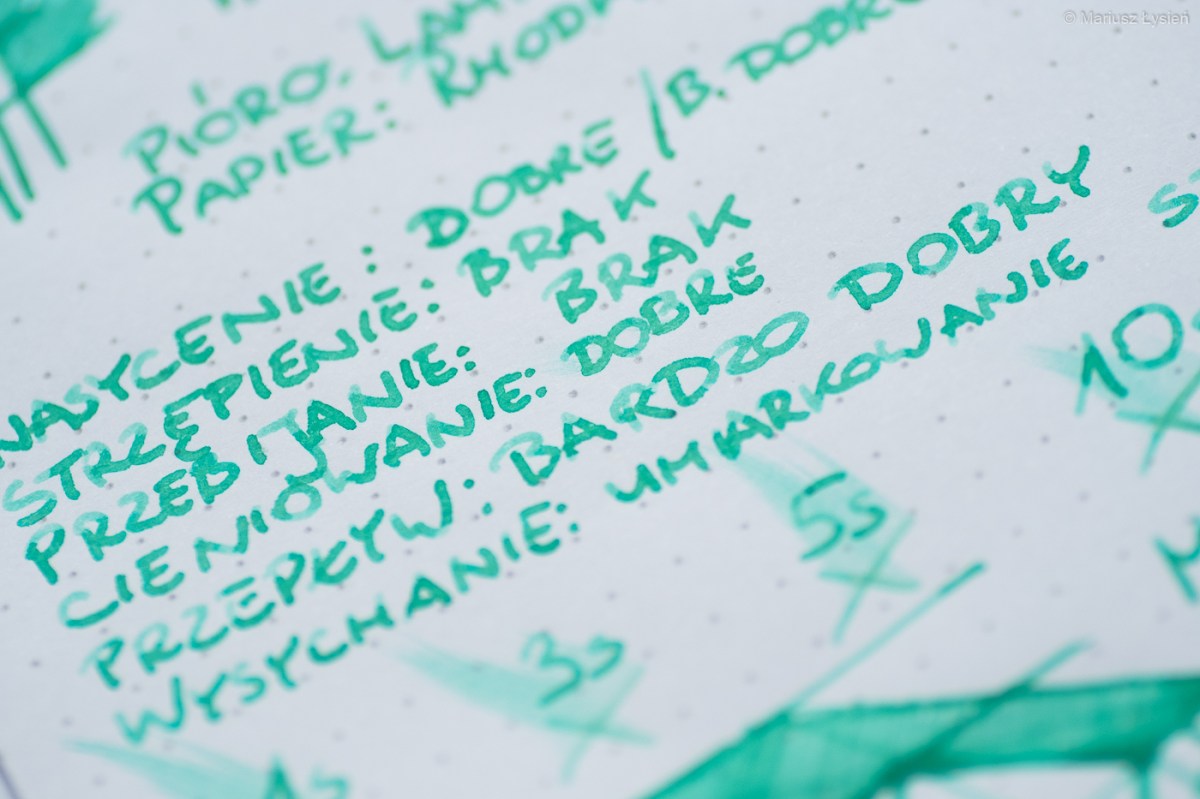 © Mariusz Łysień
PIÓRO: LAMY
PAPIER: RHODIA
NASYCENIE: DOBRE / B. DOBRE
STRZĘPIENIE: BRAK
PRZEBIJANIE: BRAK
CIENIOWANIE: DOBRE
PRZEPŁYW: BARDZO DOBRY
WYSYCHANIE: UMIARKOWANIE
10s
5s
3s
1s